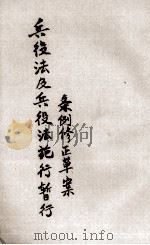 兵役法及兵役法施行暫行
條例修正草案
mtoou.info